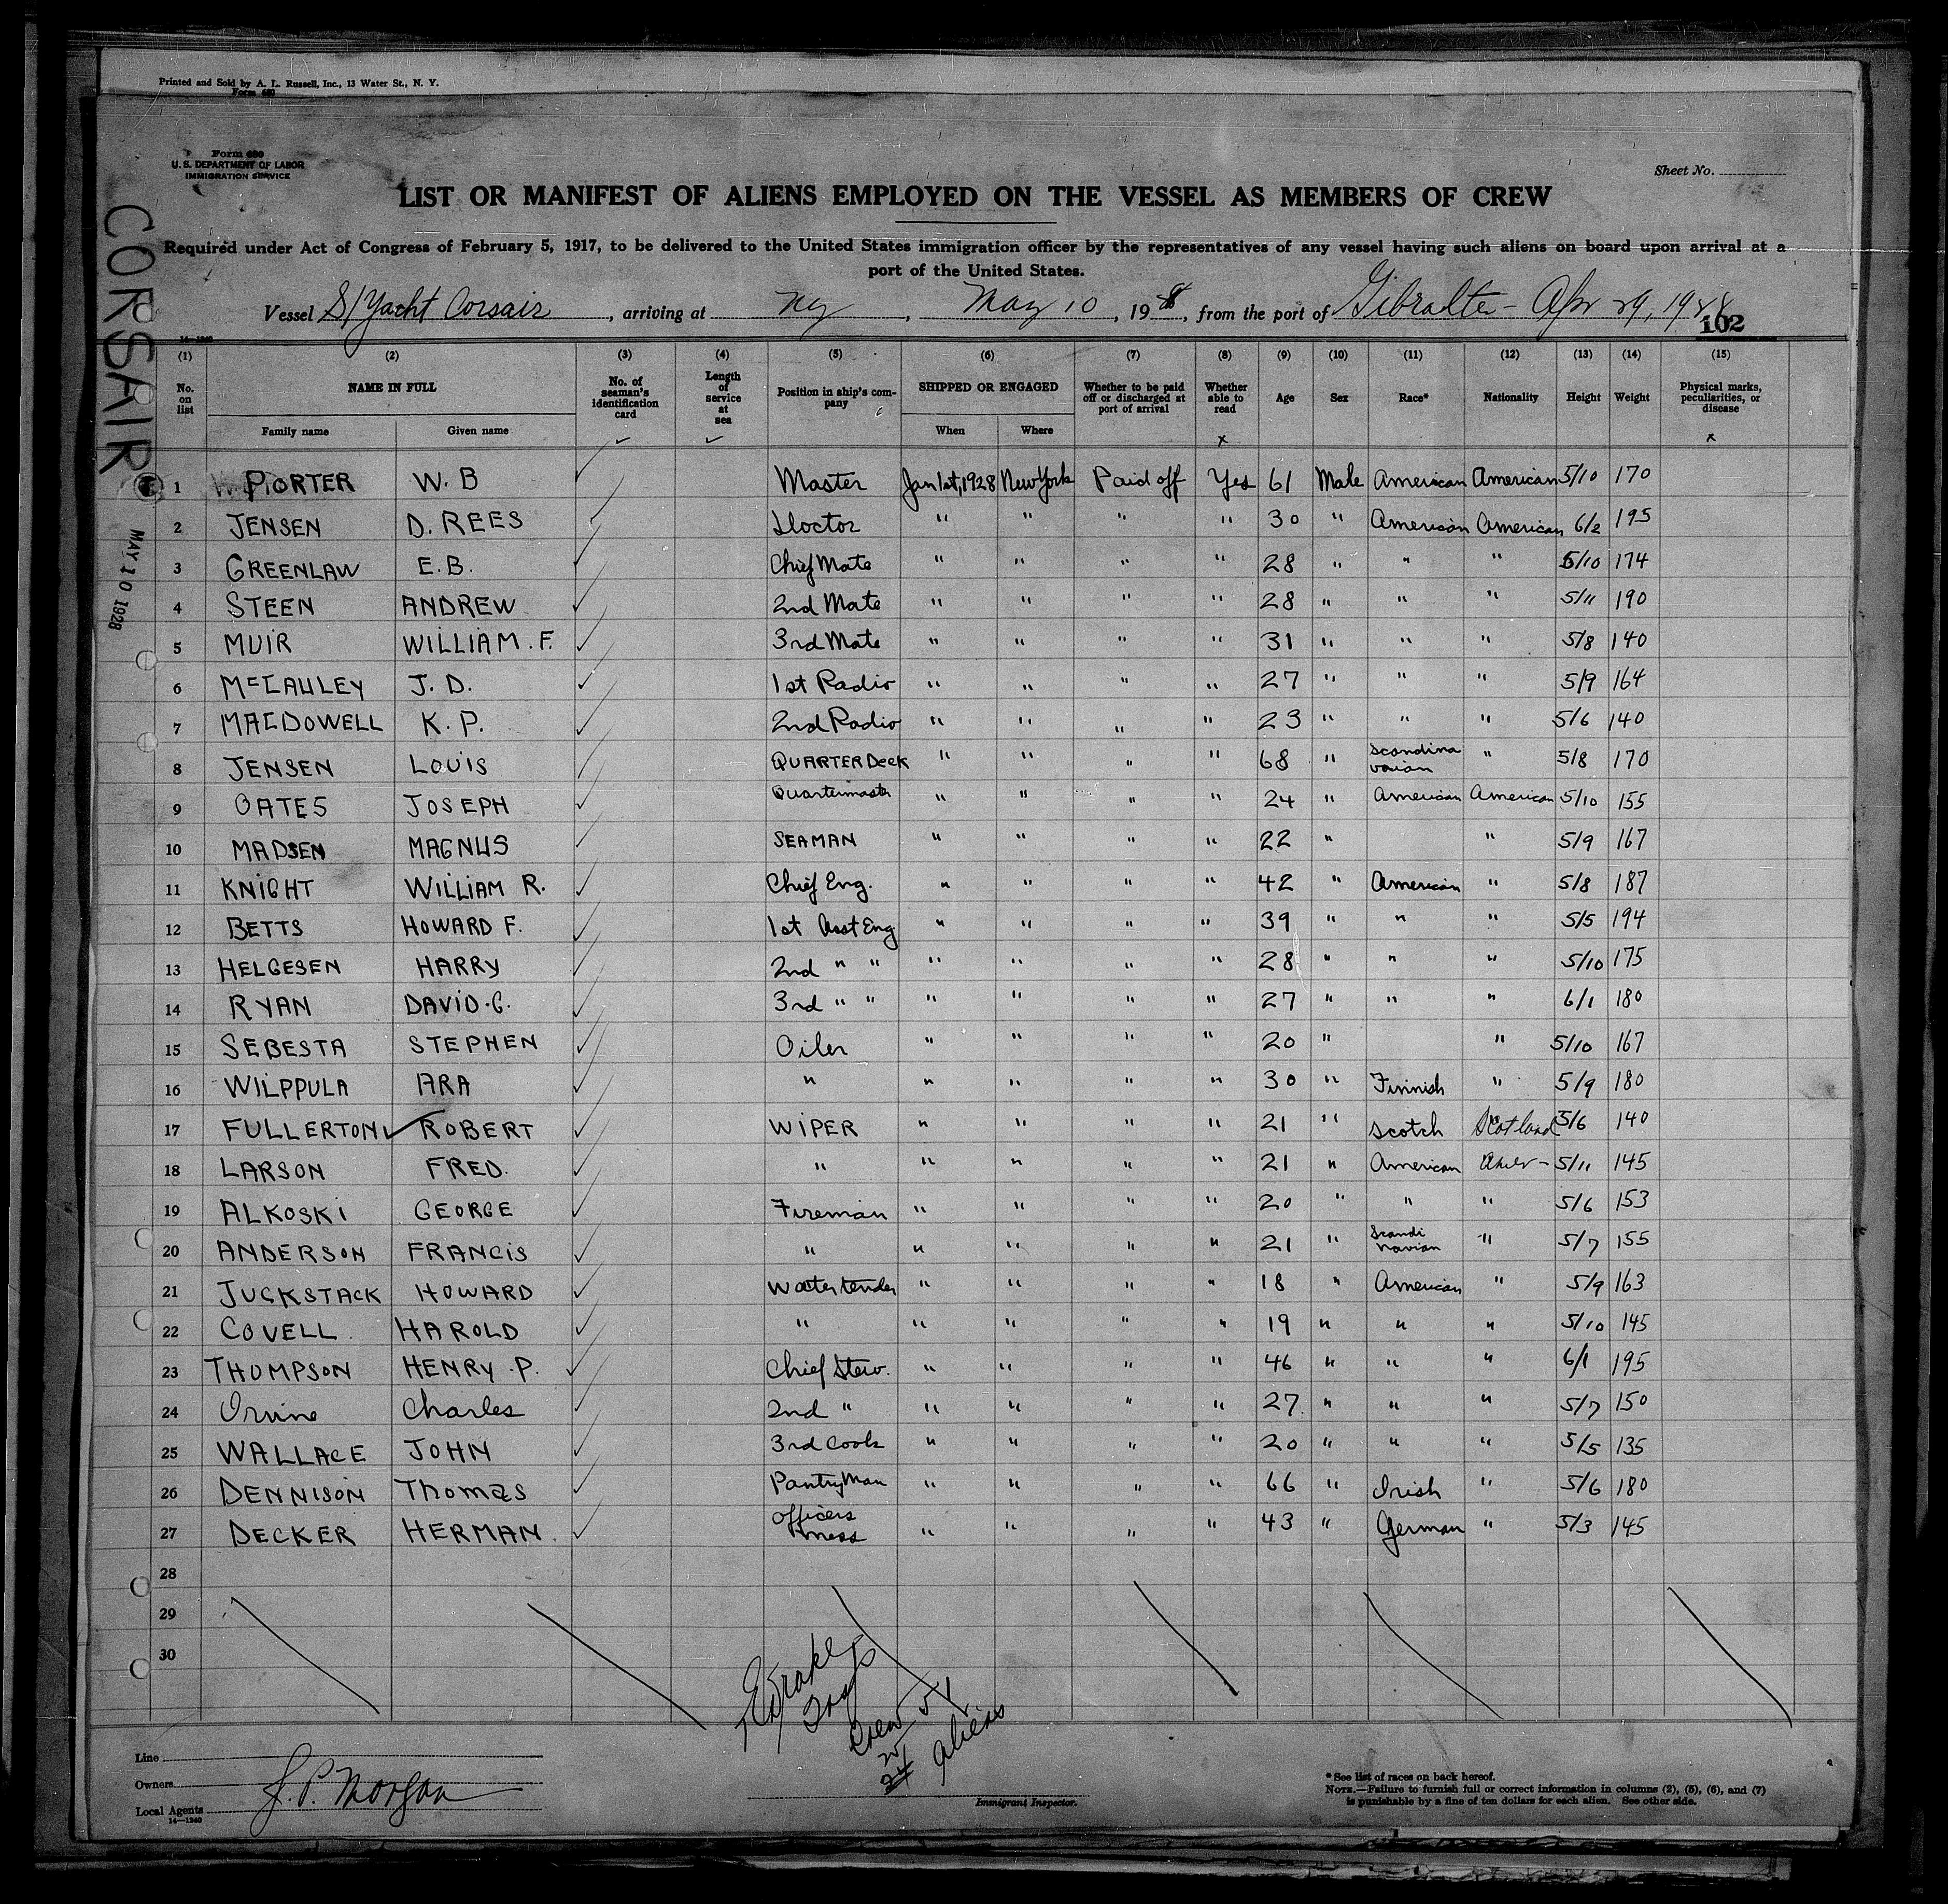 Printed and Sold by A. L. Russell, Inc., 13 Water St., N. Y.
Form 680
Form 680
U. S. DEPARTMENT OF LABOR
IMMIGRATION SERVICE
Sheet No.
CORSAIR
MAY 10 1928
LIST OR MANIFEST OF ALIENS EMPLOYED ON THE VESSEL AS MEMBERS OF CREW
Required under Act of Congress of February 5, 1917, to be delivered to the United States immigration officer by the representatives of any vessel having such aliens on board upon arrival at a
port of the United States.
Vessel S/Yacht Corsair, arriving at NY, May 10, 1928, from the port of Gibralter - Apr 29, 1928
102
14-1240
(1) (2) (3) (4) (5) (6) (7) (8) (9) (10) (11) (12) (13) (14) (15)
No. on list NAME IN FULL No. of seaman's identification card Length of service at sea Position in ship's company SHIPPED OR ENGAGED Whether to be paid off or discharged at port of arrival Whether able to read Age Sex Race* Nationality Height Weight Physical marks, peculiarities, or disease
Family name Given name When Where
1 PORTER W. B Master Jan 1st, 1928 New York Paid off Yes 61 Male American American 5/10 170
2 JENSEN D. REES Doctor " " " " 30 " American American 6/2 195
3 GREENLAW E.B. Chief Mate " " " " 28 " " " 5/10 174
4 STEEN ANDREW 2nd Mate " " " " 28 " " " 5/11 190
5 MUIR WILLIAM. F. 3rd Mate " " " " 31 " " " 5/8 140
6 McCAULEY J. D. 1st Radio " " " " 27 " " " 5/9 164
7 MACDOWELL K. P. 2nd Radio " " " " 23 " " " 5/6 140
8 JENSEN LOUIS QUARTER Deck " " " " 68 " Scandinavian " 5/8 170
9 OATES JOSEPH Quartermaster " " " " 24 " American American 5/10 155
10 MADSEN MAGNUS SEAMAN " " " " 22 " " 5/9 167
11 KNIGHT WILLIAM R. Chief Eng. " " " " 42 " American " 5/8 187
12 BETTS HOWARD F. 1st Asst Eng " " " " 39 " " " 5/5 194
13 HELGESEN HARRY 2nd " " " " " " 28 " " " 5/10 175
14 RYAN DAVID. G. 3rd " " " " " " 27 " " " 6/1 180
15 SEBESTA STEPHEN Oiler " " " " 20 " " 5/10 167
16 WILPPULA ARA " " " " " 30 " Finnish " 5/9 180
17 FULLERTON ROBERT WIPER " " " " 21 " Scotch Scotland 5/6 140
18 LARSON FRED. " " " " " 21 " American 5/11 145
19 ALKOSKI GEORGE Fireman " " " " 20 " " " 5/6 153
20 ANDERSON FRANCIS " " " " " 21 " Scandinavian " 5/7 155
21 JUCKSTACK HOWARD Watertender " " " " 18 " American " 5/9 163
22 COVELL HAROLD " " " " " 19 " " " 5/10 145
23 THOMPSON HENRY. P. Chief Stew. " " " " 46 " " " 6/1 195
24 Irvine Charles 2nd " " " " " 27 " " " 5/7 150
25 WALLACE JOHN 3rd Cook " " " " 20 " " " 5/5 135
26 DENNISON Thomas Pantry Man " " " " 66 " Irish " 5/6 180
27 DECKER HERMAN. Officers mess " " " " 43 " German " 5/3 145
28
29
30
Crew 51
aliens
Line
Owners J. P. Morgan
Local Agents
14-1240
Immigrant Inspector.
* See list of races on back hereof.
NOTE.—Failure to furnish full or correct information in columns (2), (5), (6), and (7)
is punishable by a fine of ten dollars for each alien. See other side.